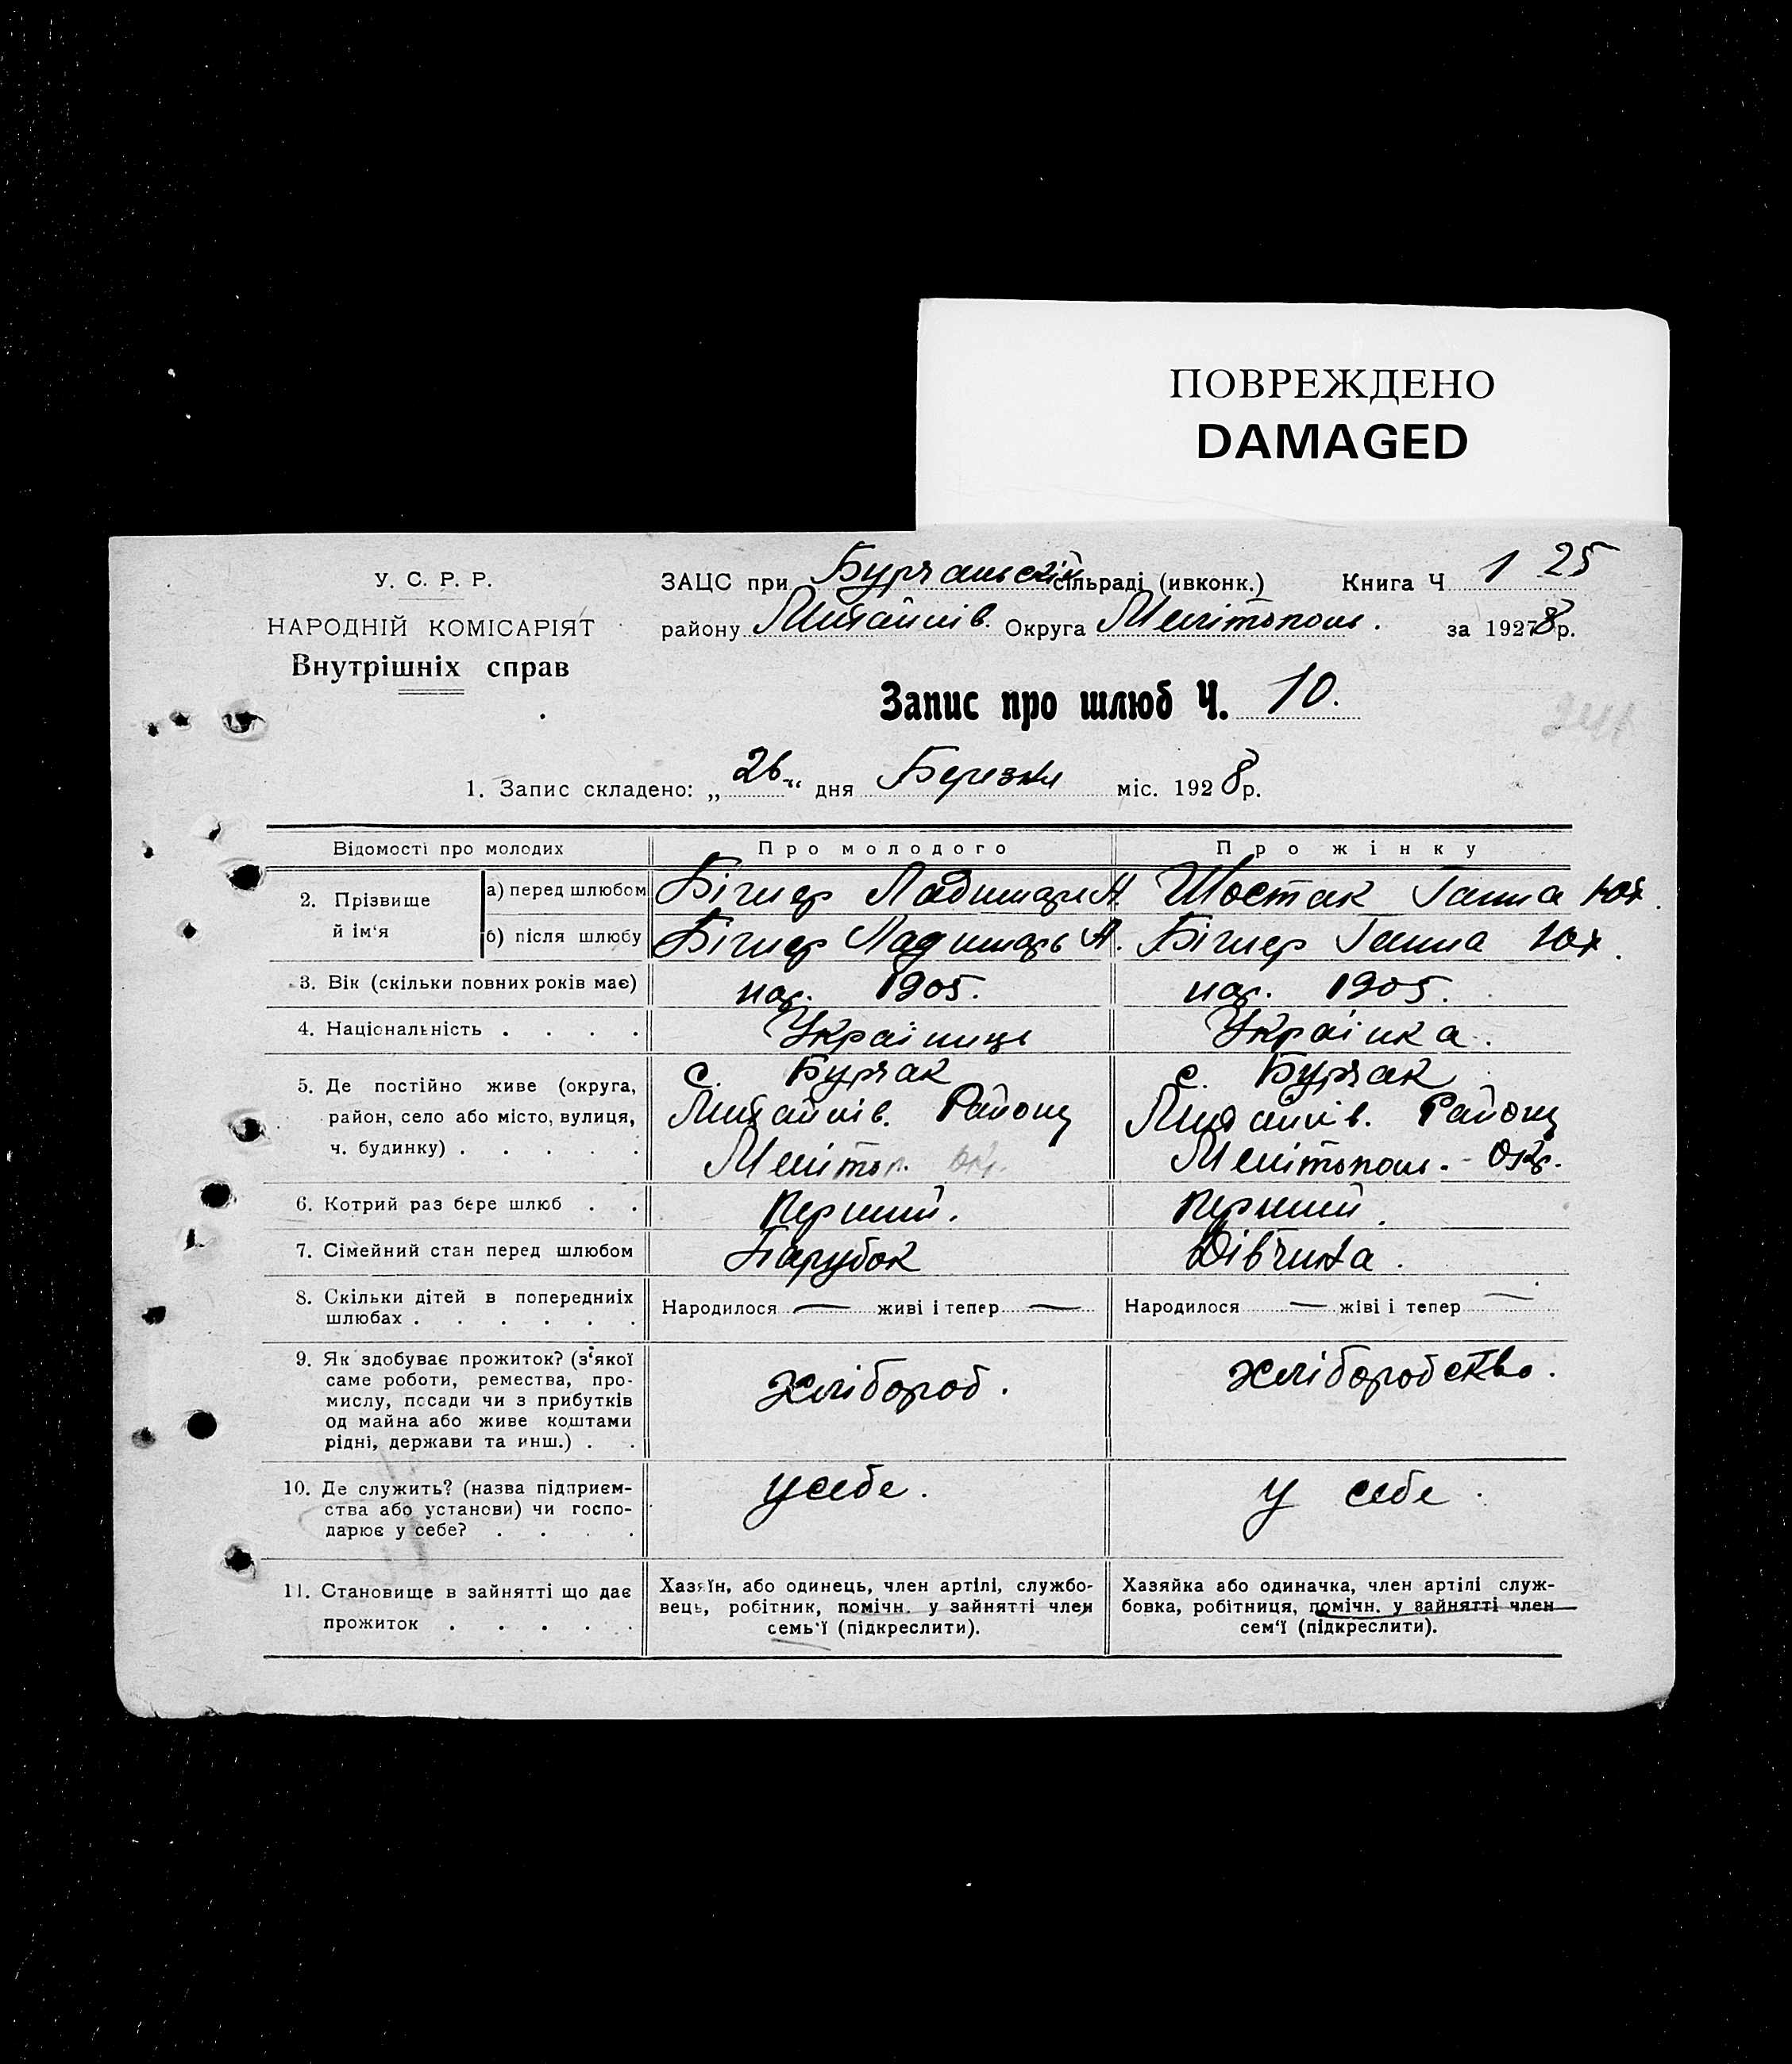 ПОВРЕЖДЕНО
DAMAGED
У. С. Р. Р.
НАРОДНІЙ КОМІСАРІЯТ
Внутрішніх справ
ЗАЦС при Бурчанській сільраді (ивконк.) Книга Ч 1 25
району Михайлів. Округа Мелітополь. за 1927 8 р.
Запис про шлюб Ч. 10.
1. Запис складено: „26“ дня Березня міс. 1928 р.
Відомості про молодих
Про молодого
Про жінку
2. Прізвище й ім‘я
а) перед шлюбом
Шостак Ганна Юх.
б) після шлюбу
Ганна Юх.
3. Вік (скільки повних років має)
нар. 1905.
нар. 1905.
4. Національність . . . .
Українць
Українка.
5. Де постійно живе (округа,
район, село або місто, вулиця,
ч. будинку) . . . . .
с. Бурчак
Михайлів. Району
Мелітоп. окр.
с. Бурчак
Михайлів. Району
Мелітополь. - Окр.
6. Котрий раз бере шлюб . .
Перший.
Перший.
7. Сімейний стан перед шлюбом
Парубок
Дівчина.
8. Скільки дітей в попередниіх
шлюбах . . . . . .
Народилося — живі і тепер —
Народилося — жіві і тепер —
9. Як здобуває прожиток? (з‘якої
саме роботи, ремества, про-
мислу, посади чи з прибутків
од майна або живе коштами
рідні, держави та инш.) . .
хлібороб.
хліборобство.
10. Де служить? (назва підприєм-
ства або установи) чи госпо-
дарює у себе? . . . .
у себе.
у себе.
11. Становище в зайнятті що дає
прожиток . . . . .
Хазяїн, або одинець, член артілі, службо-
вець, робітник, помічн. у зайнятті член
семь‘ї (підкреслити).
Хазяйка або одиначка, член артілі служ-
бовка, робітниця, помічн. у зайнятті член
сем‘ї (підкреслити).